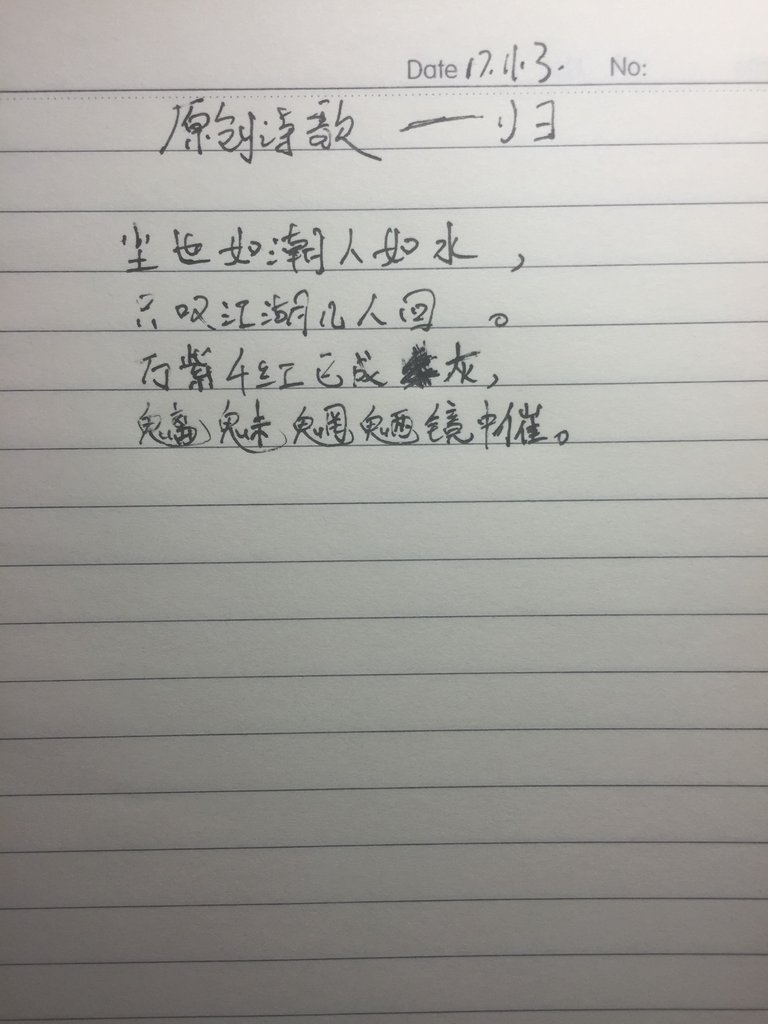 Date 17.11.3. No:
原创诗歌 — 归
尘世如潮人如水，
只叹江湖几人回。
万紫千红已成灰，
魑魅魍魉镜中催。